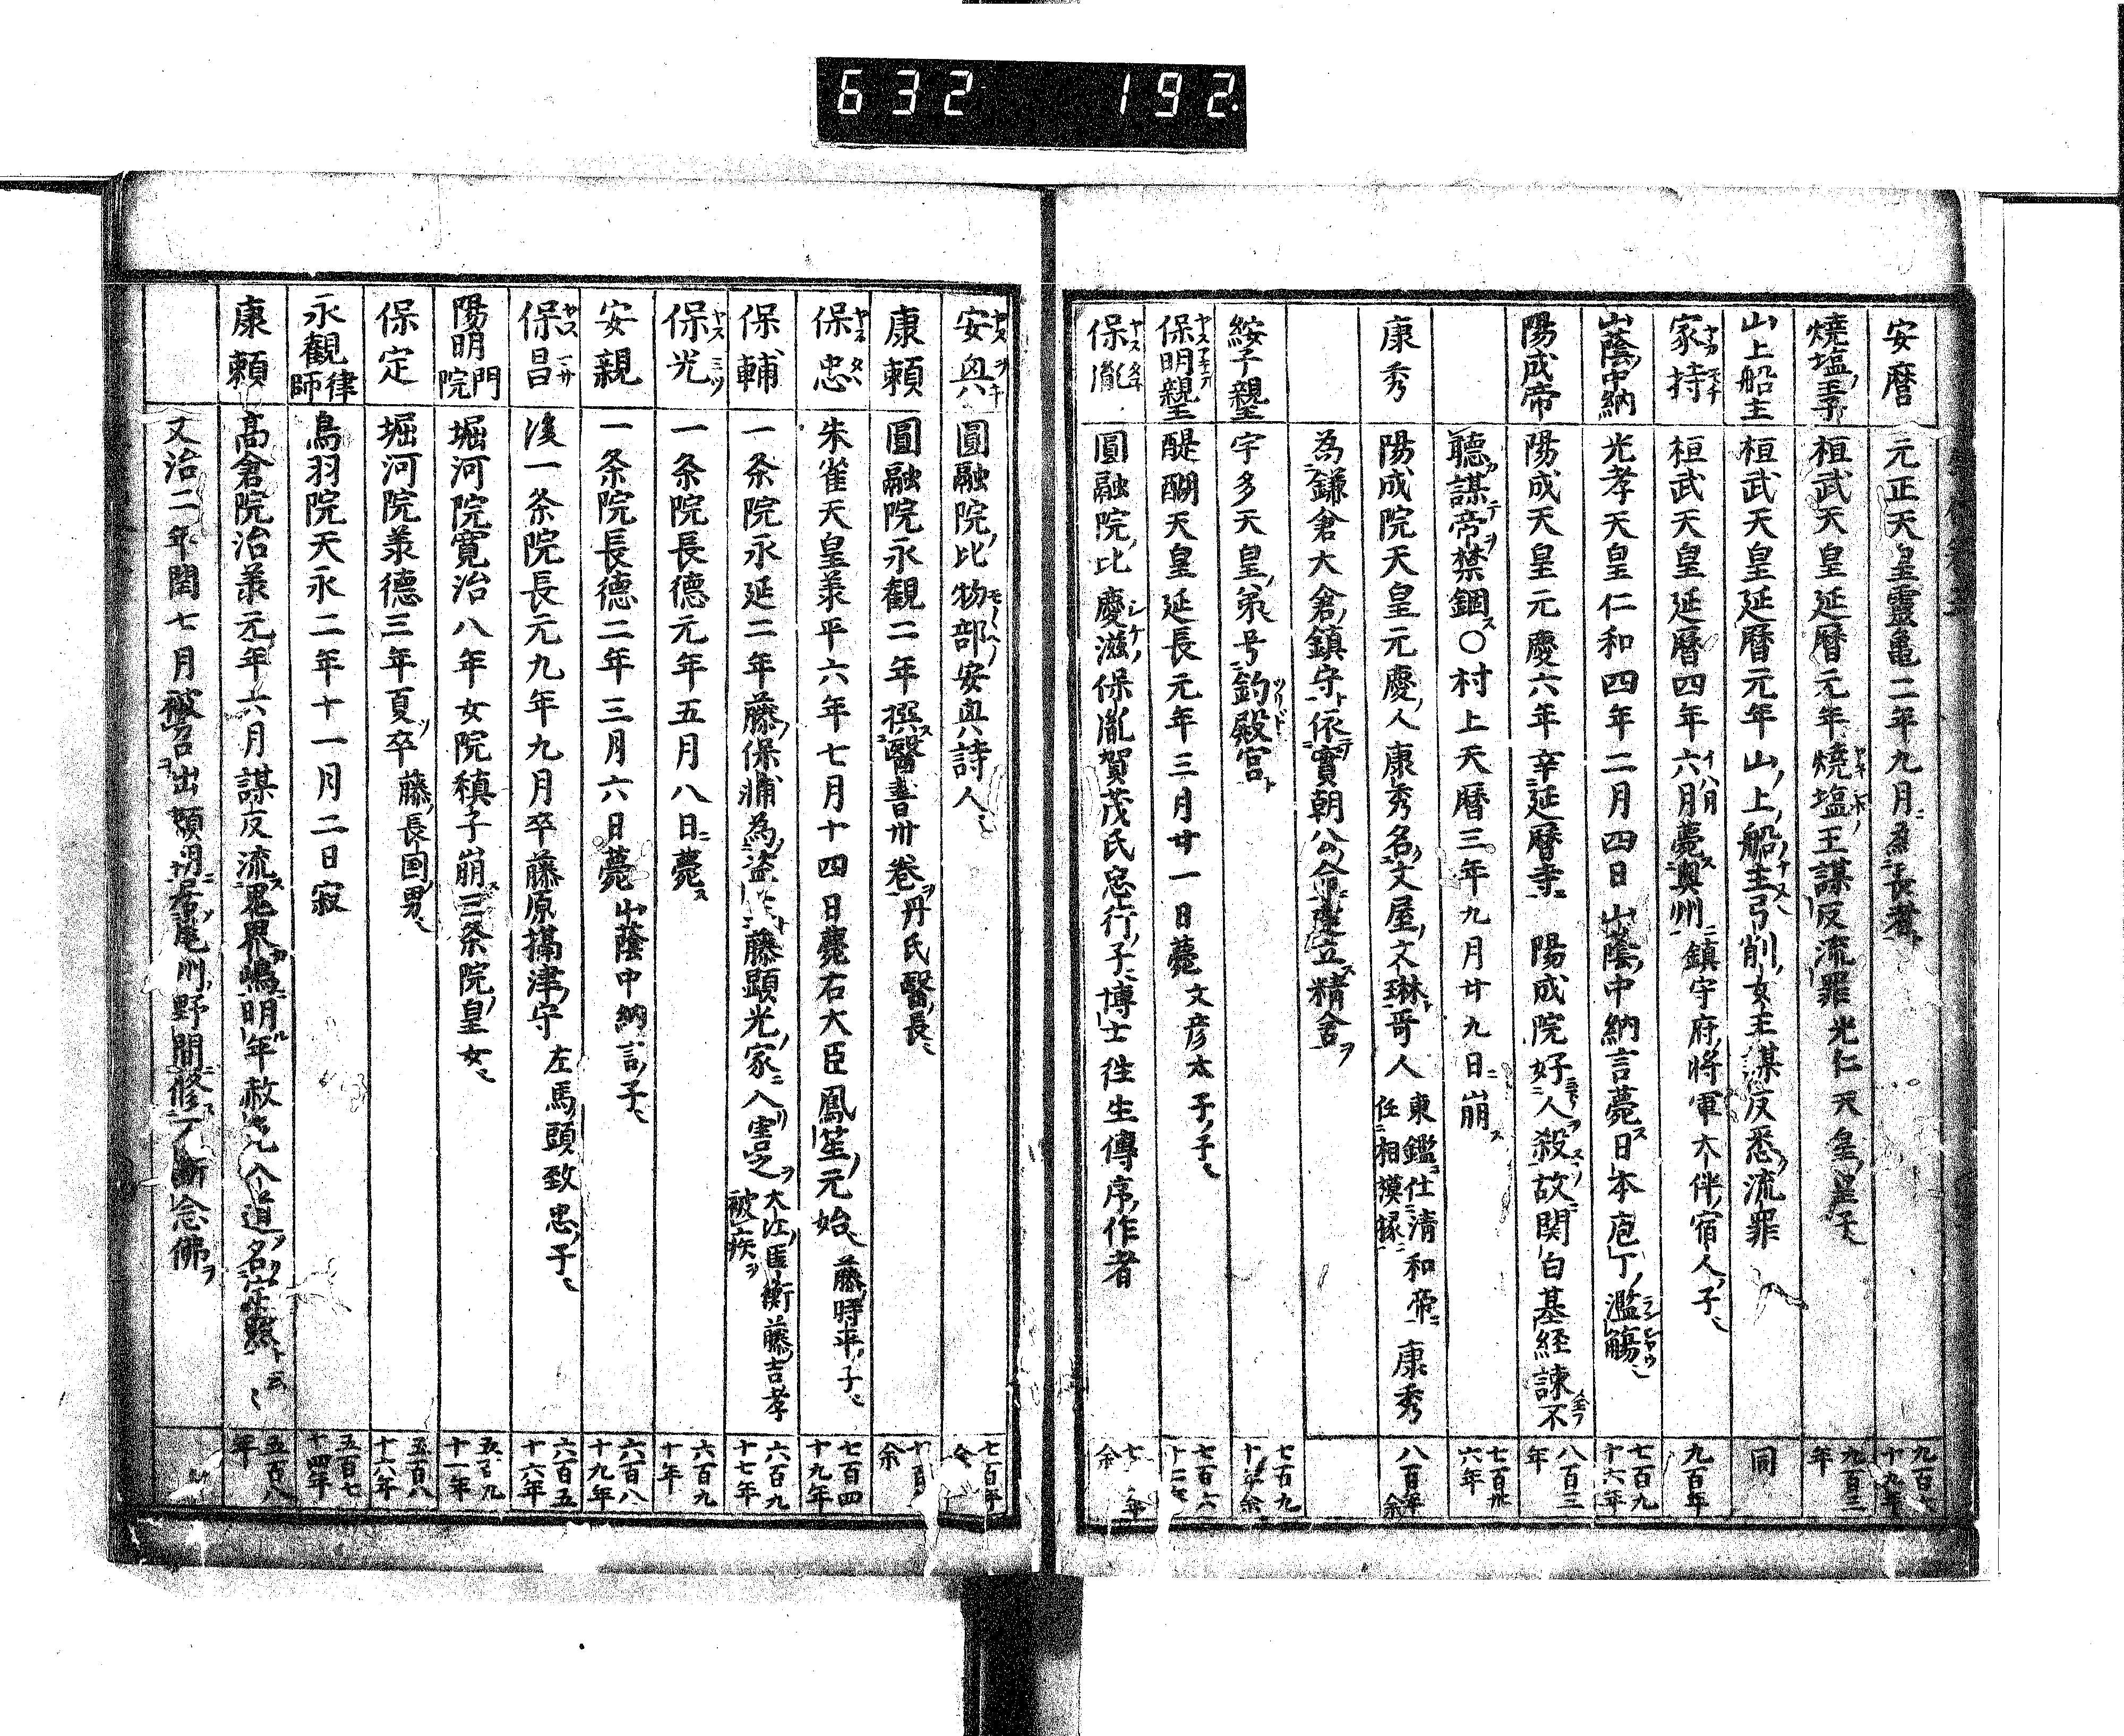 632 192
安麿 元正天皇靈亀二年九月ニ為長者 九百六十九年
焼塩王子 桓武天皇延暦元年焼塩王謀反流罪 光仁天皇ノ皇子 九百三年
山上船主 桓武天皇延暦元年山ノ上ノ船主弓削女主謀反悉流罪 同
家持 桓武天皇延暦四年六月薨奥州 鎮守府ノ将軍大伴ノ宿人ノ子 九百年
山蔭中納 光孝天皇仁和四年二月四日山蔭中納言薨ス日本庖丁ノ濫觴 七百九十六年
陽成帝 陽成天皇元慶六年幸延暦寺 陽成院好人ヲ殺故関白基経諌不 八百三年
聴謀テ帝ヲ禁錮ス〇村上天暦三年九月廿九日ニ崩ス 七百卅六年
康秀 陽成院天皇元慶ノ人康秀名ハ文屋ノ文琳ト哥人 東鑑ニ仕清和帝ニ康秀任相摸掾 八百年余
為鎌倉大倉鎮守依實朝公ノ命建立ス精舎ヲ
綏子親王 宇多天皇ノ衆号釣殿宮ト 七百九十年余
保明親王 醍醐天皇延長元年三月廿一日薨 文彦太子ノ子 七百六十二年
保胤 圓融院ノ比慶滋ノ保胤賀茂氏忠行ノ子博士往生傳序ノ作者 七年余
安興 圓融院ノ比物部安興詩人 七百年余
康頼 圓融院永観二年撰ス醫書卅巻ヲ丹氏醫ノ長
保忠 朱雀天皇羕平六年七月十四日薨右大臣 鳳笙ノ元始 藤ノ時平ノ子 七百四十九年
保輔 一条院永延二年藤ノ保輔為盗 藤顕光ノ家ニ入害之ヲ 大江ノ匡衡藤ノ吉孝被疾ヲ 六百九十七年
保光 一条院長徳元年五月八日ニ薨ス 六百九十年
安親 一条院長徳二年三月六日薨 山蔭中納言ノ子 六百八十九年
保昌 後一条院長元九年九月卒藤原摂津ノ守 左馬頭致忠ノ子 六百五十六年
陽明門院 堀河院寛治八年女院禛子崩ス三条院ノ皇女 五百九十一年
保定 堀河院羕徳三年夏卒 藤ノ長国ノ男 五百八十六年
永観律師 鳥羽院天永二年十一月二日寂 五百七十四年
康頼 高倉院治羕元年六月謀反流鬼界嶋明年赦 入道ノ名ヲ性照ト云 五百八年
文治二年閏七月被召出頼朝ニ居尾州ノ野間修不断念佛ヲ